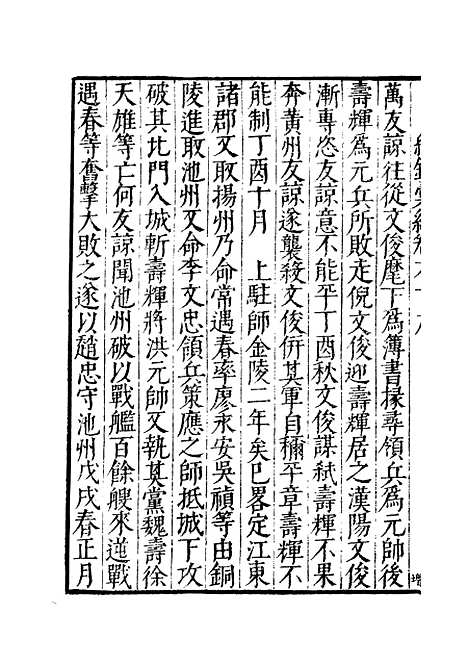 萬友諒往從文俊麾下爲簿書掾尋領兵爲元帥後
壽輝爲元兵所敗走倪文俊迎壽輝居之漢陽文俊
漸專恣友諒意不能平丁酉秋文俊謀弑壽輝不果
奔黃州友諒遂襲殺文俊併其軍自稱平章壽輝不
能制丁酉十月　上駐師金陵二年矣已畧定江東
諸郡又取揚州乃命常遇春率廖永安吳禎等由銅
陵進取池州又命李文忠領兵策應之師抵城下攻
破其北門入城斬壽輝將洪元帥又執其黨魏壽徐
天雄等亡何友諒聞池州破以戰艦百餘艘來逆戰
遇春等奮擊大敗之遂以趙忠守池州戊戌春正月